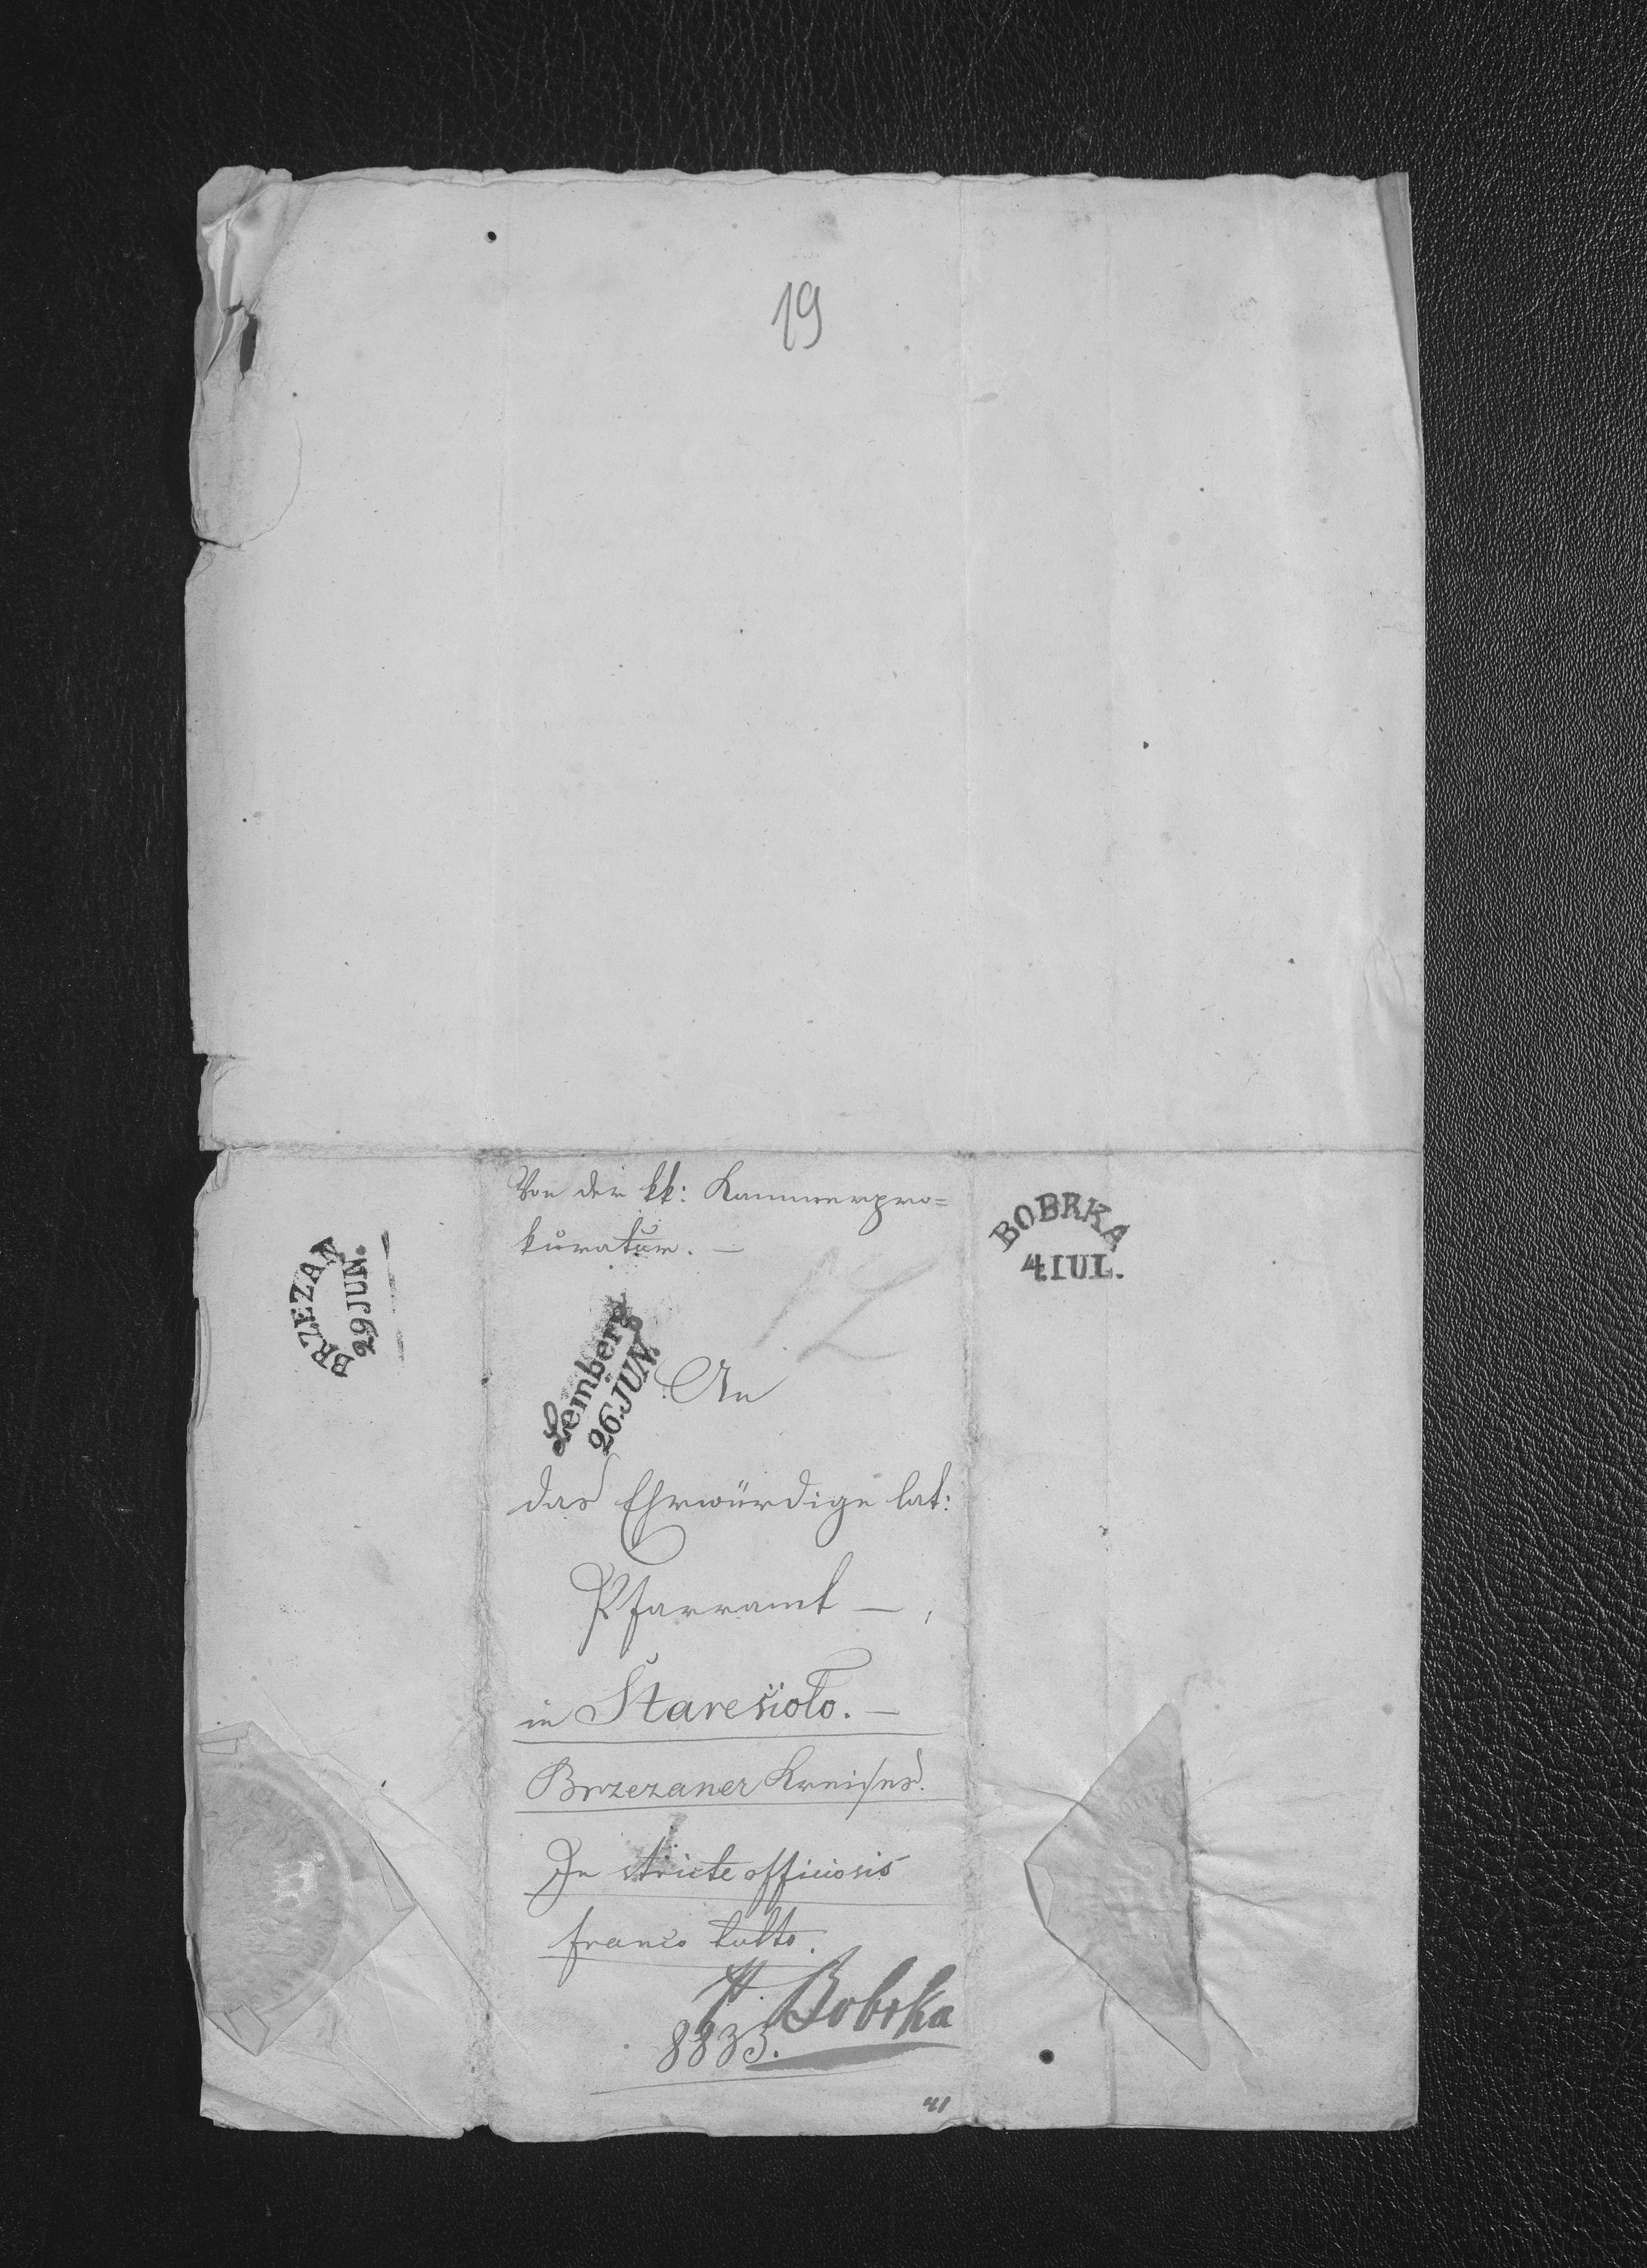 19
Von der kk: Kammerpro=
kuratur. —
BRZEZAN
29 JUN.
BOBRKA
4. IUL.
12
Lemberg
26. JUN.
An
das Ehrwürdige lat:
Pfarramt —,
in Staresiolo. —
Brzezaner Kreises.
In stricte officiosis
franco tutto.
Bobrka
8835.
41